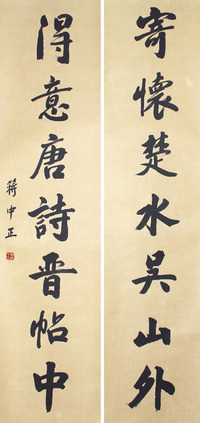 寄懷楚水吳山外
得意唐詩晋帖中
蔣中正